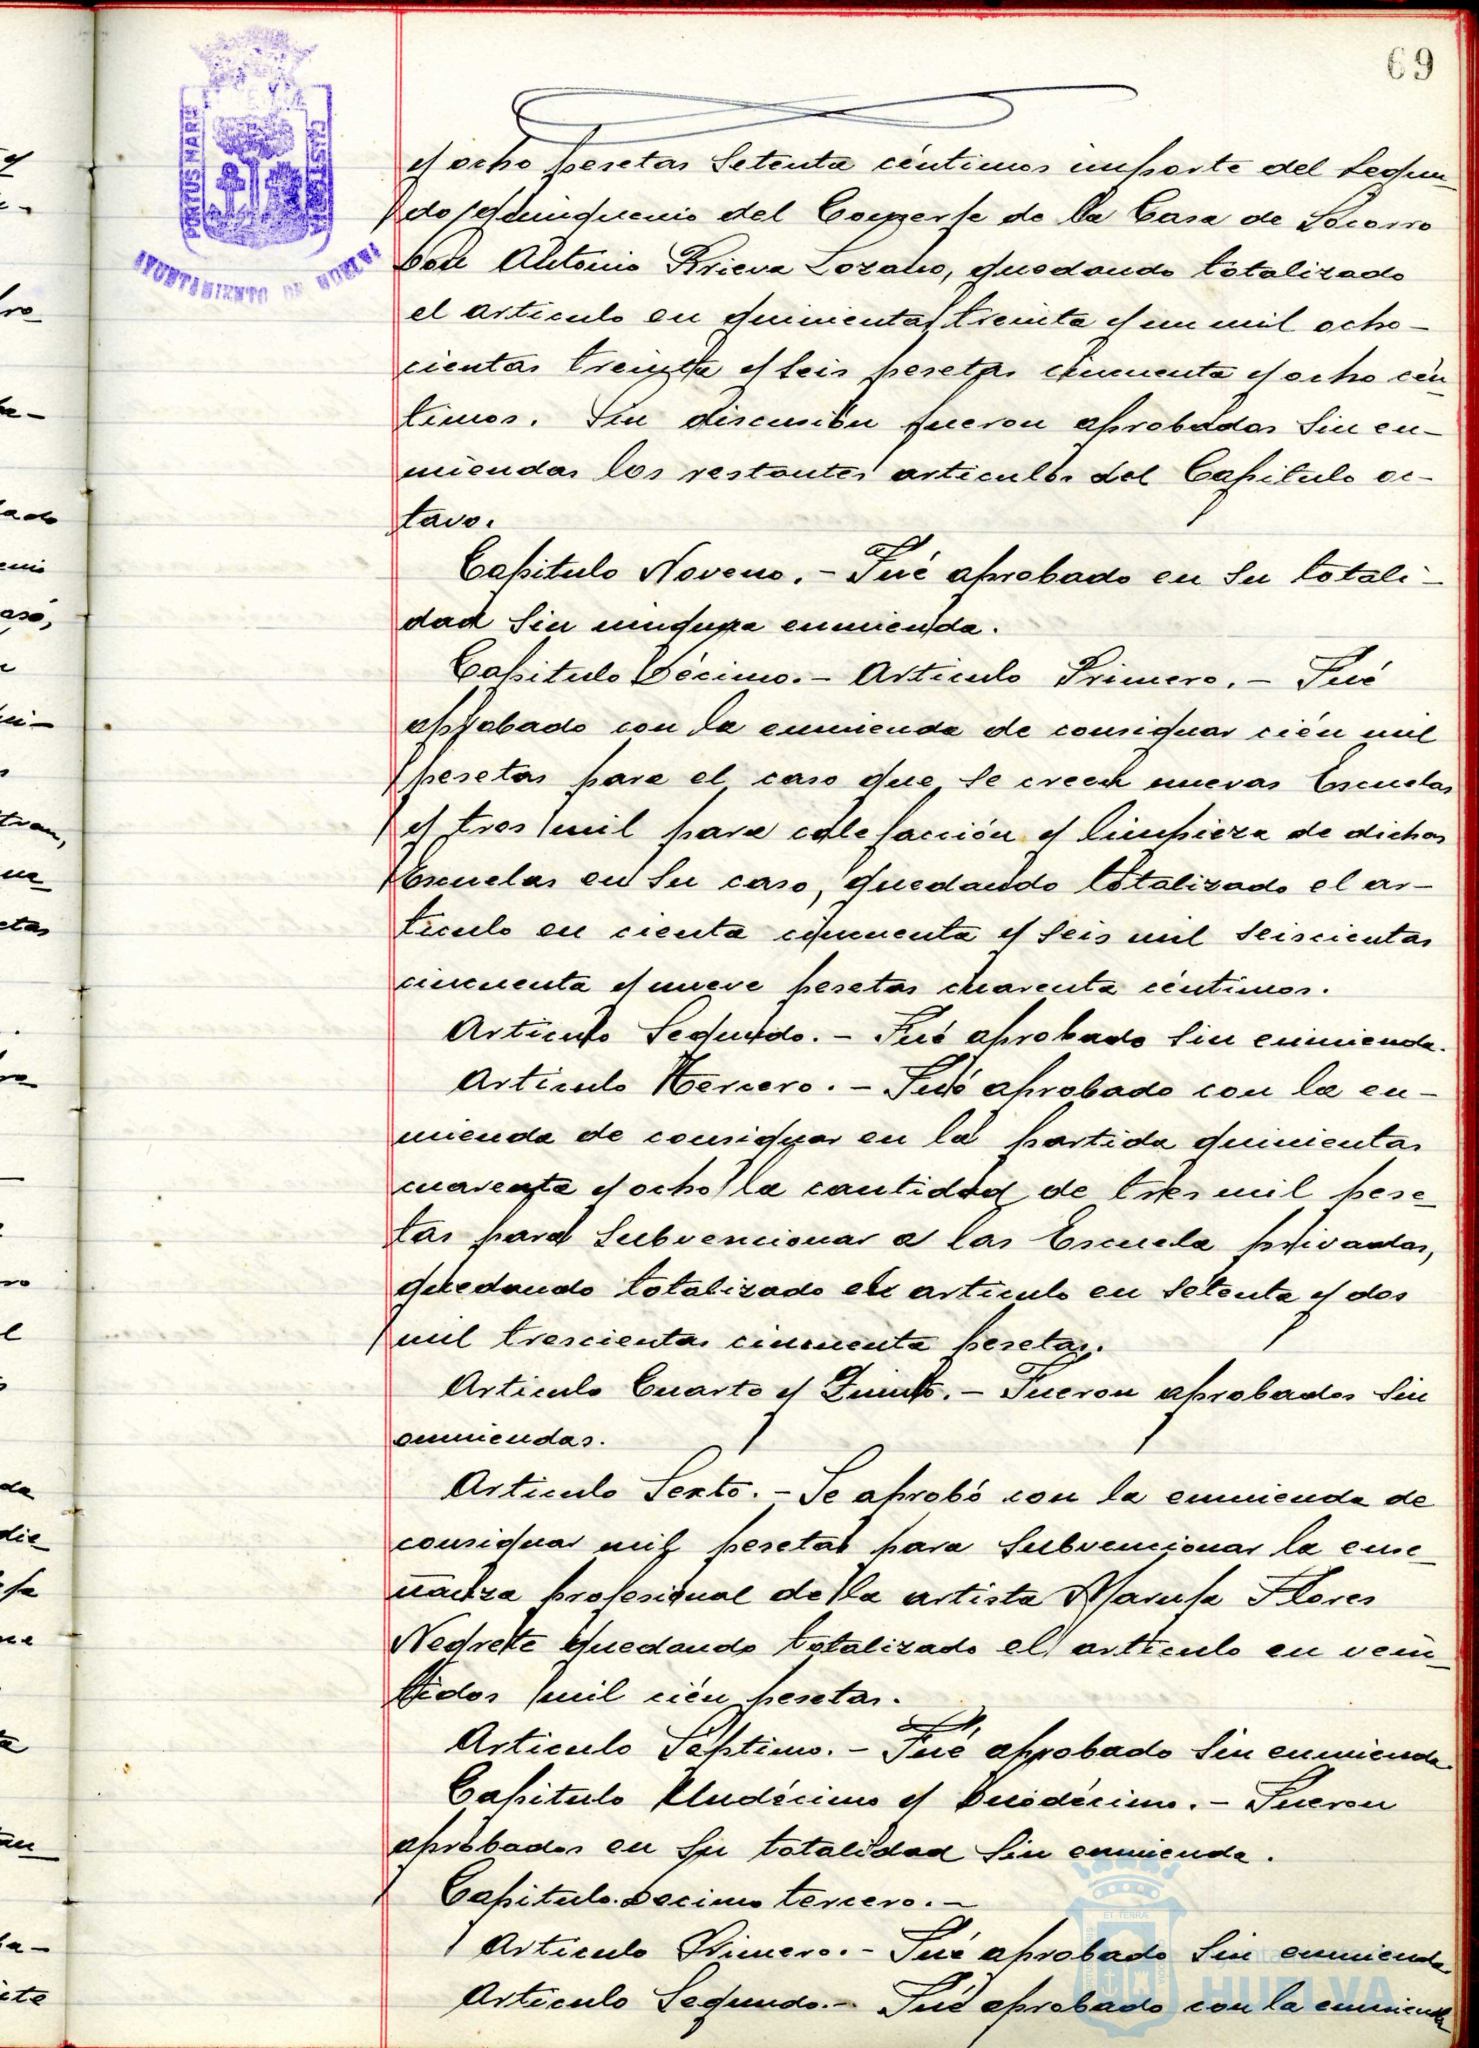 69
PORTUS MARIS
CUSTODIA
AYUNTAMIENTO DE HUELVA
y ocho pesetas setenta céntimos importe del segun-
do quinquenio del Conserje de la Casa de Socorro
Don Antonio Krieva Lozano, quedando totalizado
el articulo en quinientas treinta y un mil ocho-
cientas treinta y seis pesetas cincuenta y ocho cén-
timos. Sin discusión fueron aprobados sin en-
miendas los restantes articulos del Capitulo oc-
tavo.
Capitulo Noveno. - Fué aprobado en su totali-
dad sin ninguna enmienda.
Capitulo Décimo. - Articulo Primero. - Fué
aprobado con la enmienda de consignar cién mil
pesetas para el caso que se creen nuevas Escuelas
y tres mil para calefacción y limpieza de dichas
Escuelas en su caso, quedando totalizado el ar-
ticulo en cienta cincuenta y seis mil seiscientas
cincuenta y nueve pesetas cuarenta céntimos.
Articulo Segundo. - Fué aprobado sin enmienda.
Articulo Tercero. - Fué aprobado con la en-
mienda de consignar en la partida quinientas
cuarenta y ocho la cantidad de tres mil pese-
tas para subvencionar a las Escuela privadas,
quedando totalizado el articulo en setenta y dos
mil trescientas cincuenta pesetas.
Articulo Cuarto y Quinto. - Fueron aprobados sin
enmiendas.
Articulo Sexto. - Se aprobó con la enmienda de
consignar mil pesetas para subvencionar la ense-
ñanza profesional de la artista Maruja Flores
Negrete quedando totalizado el articulo en vein-
tidos mil cién pesetas.
Articulo Séptimo. - Fué aprobado sin enmienda.
Capitulo Undécimo y Duodécimo. - Fueron
aprobados en su totalidad sin enmienda.
Capitulo Decimo tercero. -
Articulo Primero. - Fué aprobado sin enmienda
Articulo Segundo. - Fué aprobado con la enmienda
HUELVA